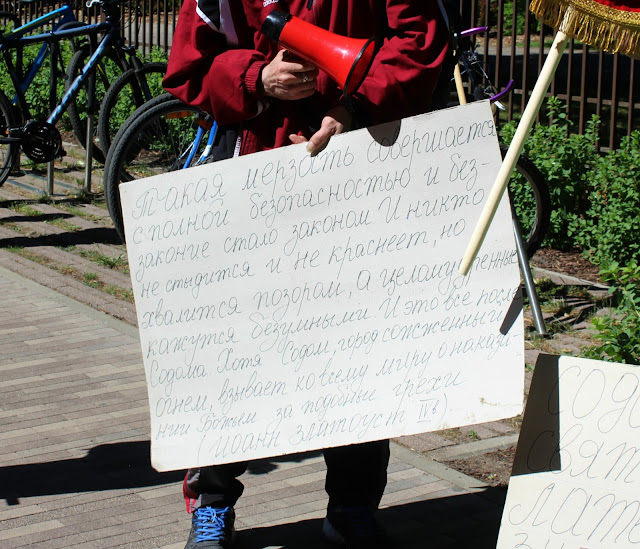 такая мерзость совершается
с полной безопасностью и без-
законие стало законом И никто
не стыдится и не краснеет, но
хвалится позором, а целомудренные
кажутся безумными И это все после
Содома. Хотя Содом, город сожженный
огнем, взывает ко всему миру о наказа-
нии Божьем за подобные грехи
(Иоанн Златоуст IVв)
содо
свят
лат